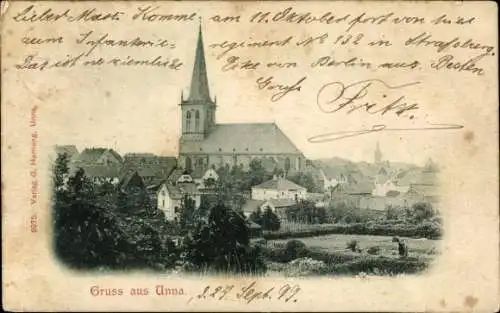 Lieber Max! Komme am 11. Oktober fort von hier
zum Infanterie-regiment No 132 in Strassburg.
Das ist ne ziemliche Ecke von Berlin aus. Besten
Gruss
Fritz
9275. Verlag G. Hornung, Unna.
Gruss aus Unna.
d. 27. Sept. 99.